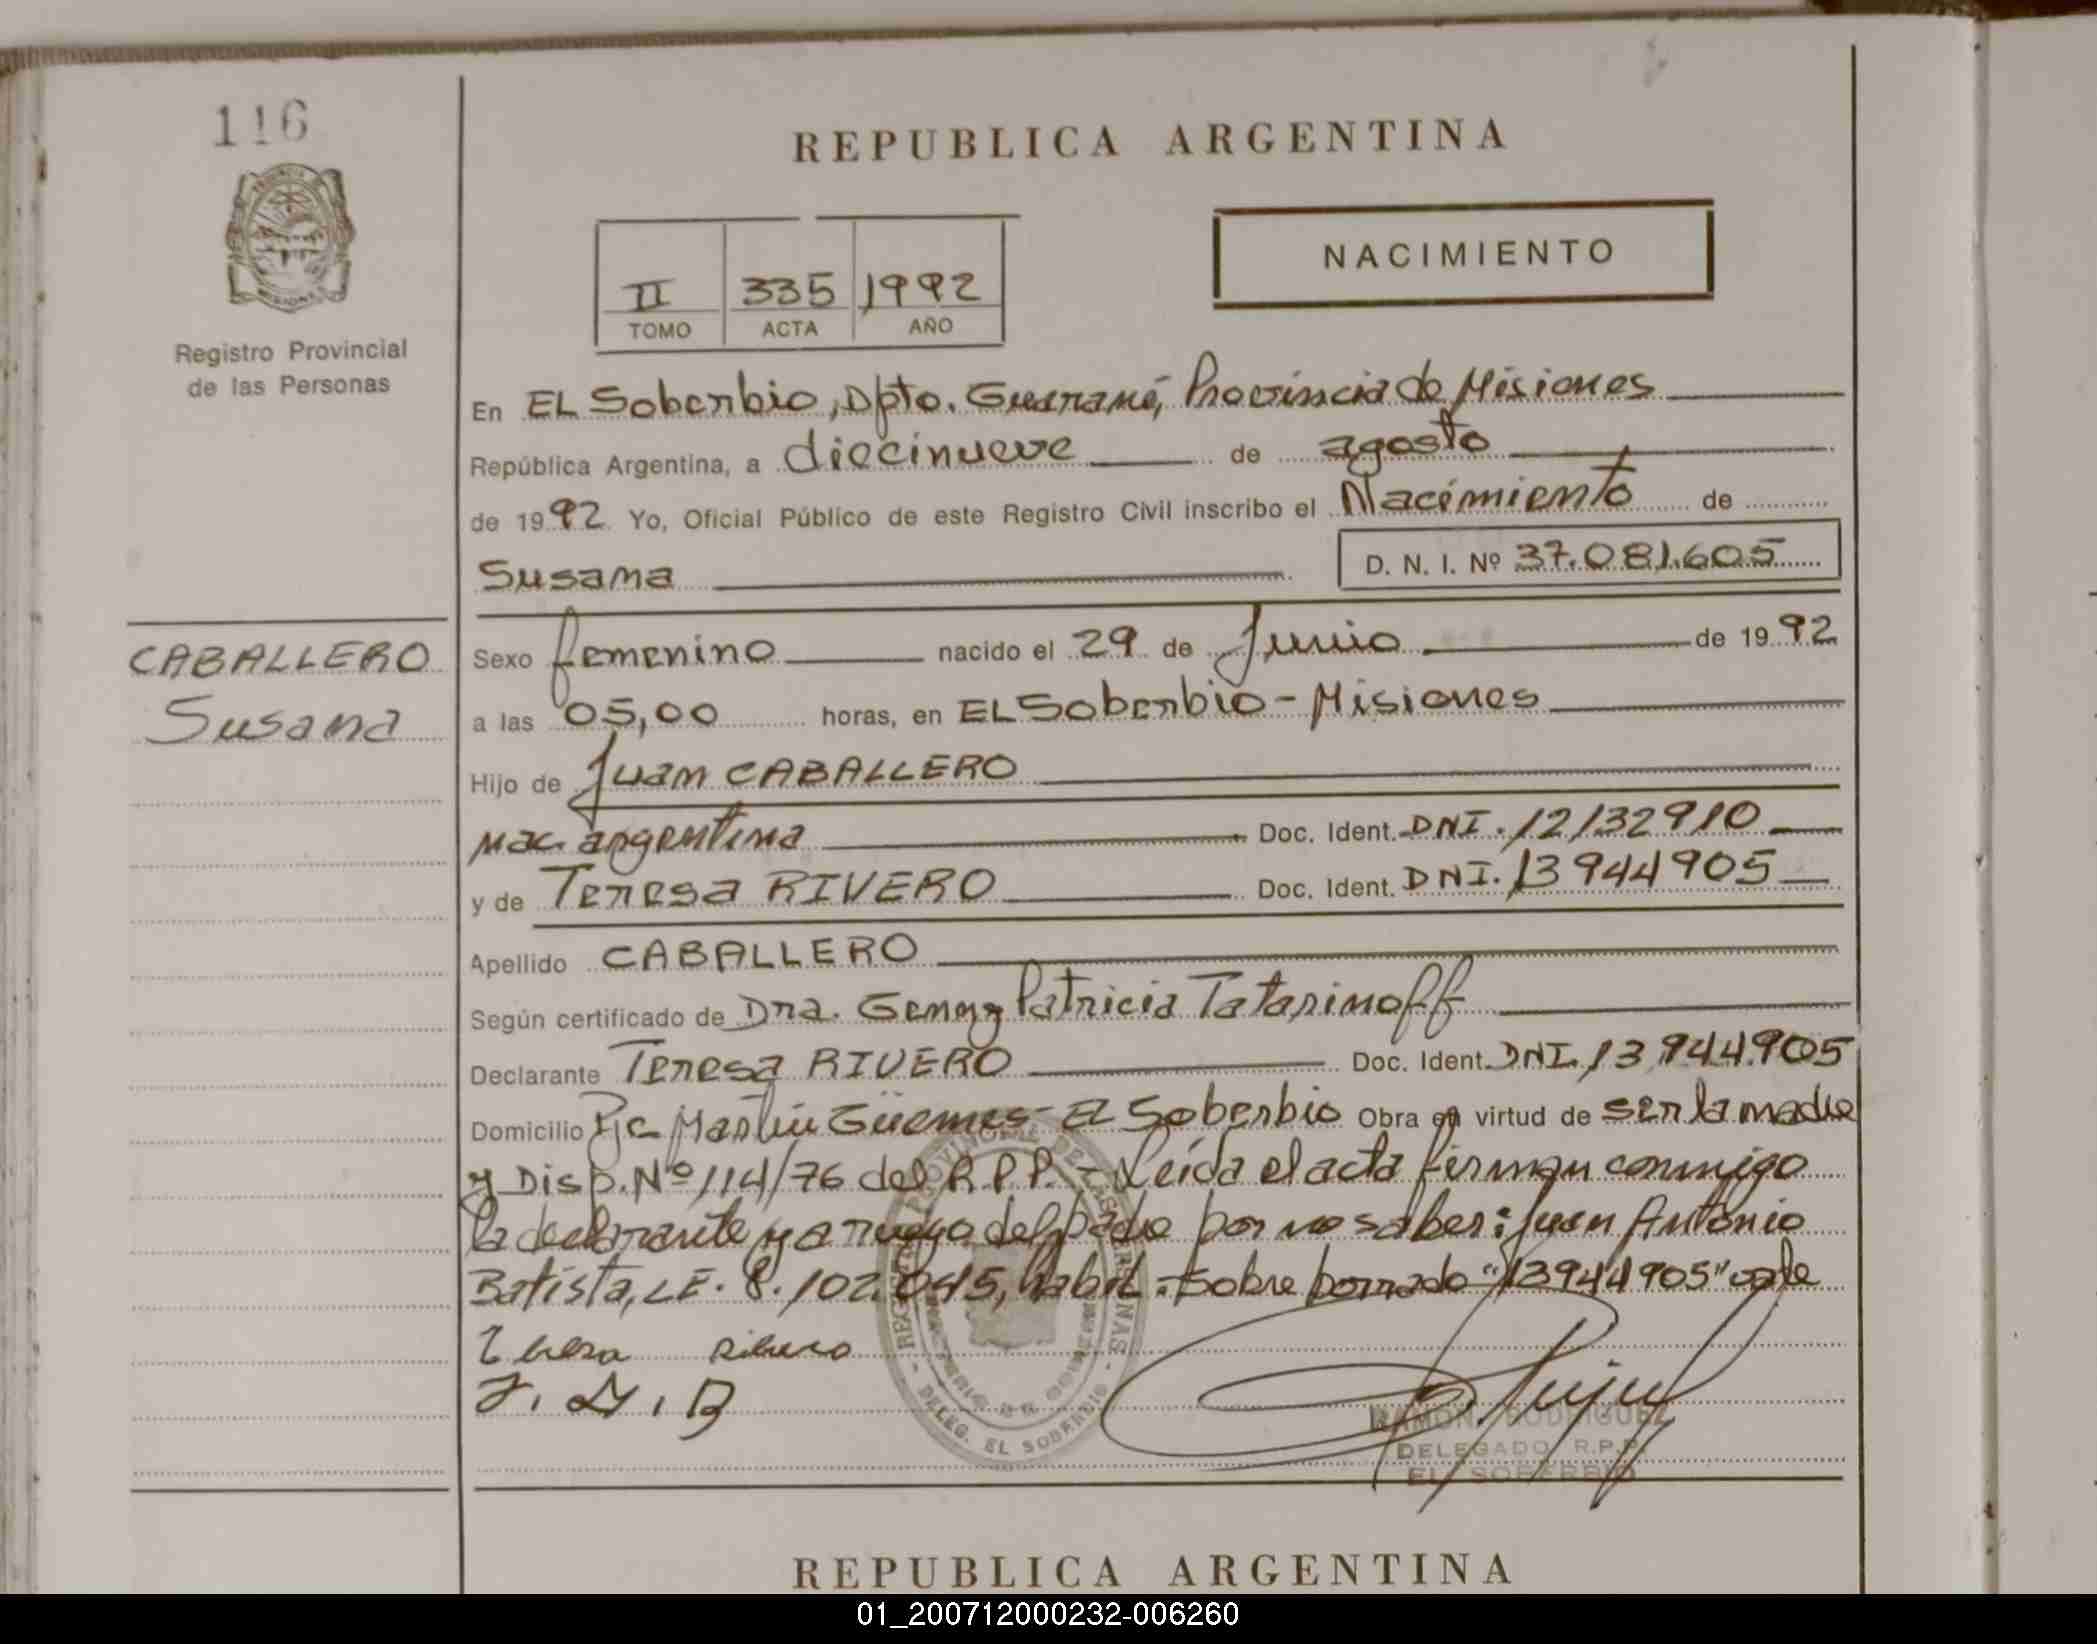 116
REPUBLICA ARGENTINA
NACIMIENTO
II 335 1992
TOMO ACTA AÑO
Registro Provincial
de las Personas
En EL Soberbio, Dpto. Guaraní, Provincia de Misiones
República Argentina, a diecinueve de agosto
de 1992 Yo, Oficial Público de este Registro Civil inscribo el Nacimiento de
Susana D. N. I. Nº 37.081.605
CABALLERO
Susana
Sexo femenino nacido el 29 de Junio de 1992
a las 05,00 horas, en EL Soberbio - Misiones
Hijo de Juan CABALLERO
nac. argentina Doc. Ident. DNI. 12132910
y de Teresa RIVERO Doc. Ident. DNI. 13944905
Apellido CABALLERO
Según certificado de Dra. Patricia Tatarinoff
Declarante Teresa RIVERO Doc. Ident. DNI. 13.944.905
Domicilio Pje Martín Güemes - El Soberbio Obra en virtud de ser la madre
y Disp. Nº 114/76 del R.P.P. - Leída el acta firman conmigo
la declarante y a ruego del padre por no saber: Juan Antonio
Batista, LE. 8.102.045, habil. - Sobre borrado "13944905" vale
J. A. B
REGISTRO PROVINCIAL DE LAS PERSONAS
DELEG. EL SOBERBIO
RAMON RODRIGUEZ
DELEGADO R.P.P.
EL SOBERBIO
REPUBLICA ARGENTINA
01_200712000232-006260